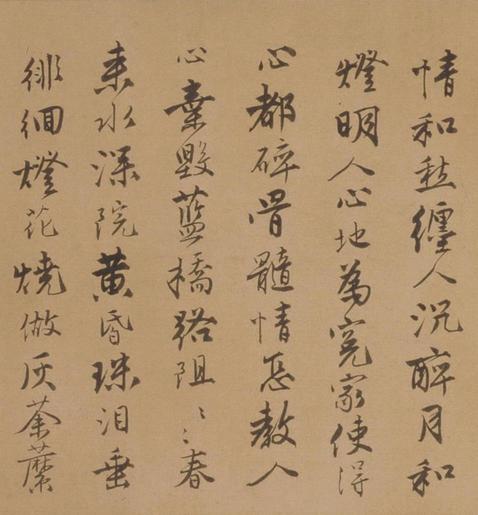 情和愁纏人沉醉月和
燈明人心地為冤家使得
心都碎骨髓情怎教人
心棄毀藍橋路阻〻〻春
来水深院黄昏珠泪垂
徘徊燈花燒做灰荼蘼